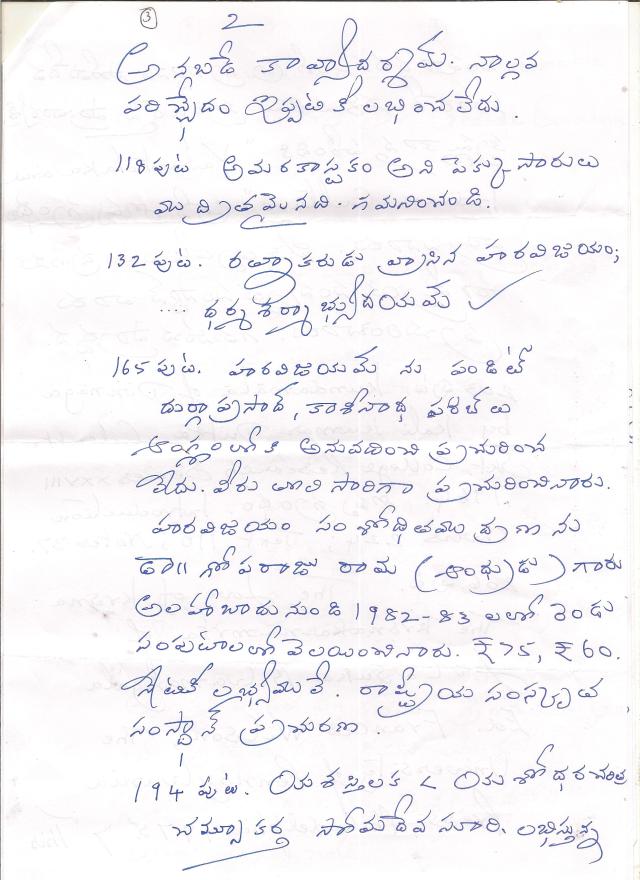 3
2
అన్నబడే కావ్యాదర్శమ్. నాల్గవ
పరిచ్ఛేదం ఇప్పటికీ లభించలేదు.
118 పుట అమరకాష్టకం అని పెక్కుసారులు
ముద్రితమైనది. గమనించండి.
132 పుట. రత్నాకరుడు వ్రాసిన హరవిజయం;
.... ధర్మశర్మాభ్యుదయమే ✓
165 పుట. హరవిజయమ్ ను పండిట్
దుర్గాప్రసాద్, కాశీనాథ పరబ్ లు
ఆంగ్లంలోకి అనువదించి ప్రచురించ
లేదు. వీరు తొలిసారిగా ప్రచురించినారు.
హరవిజయం సంశోధితముద్రణ ను
డా॥ గోపరాజు రామ (ఆంధ్రుడు) గారు
అలహాబాదునుండి 1982-83 లలో రెండు
సంపుటాలలో వెలయించినారు. ₹75, ₹60.
నేటికీ లభ్యములే. రాష్ట్రీయ సంస్కృత
సంస్థాన్ ప్రచురణ.
194 పుట. యశస్తిలక < యశోధరచరిత్ర
చమ్పూకర్త సోమదేవ సూరి. లభిస్తున్న